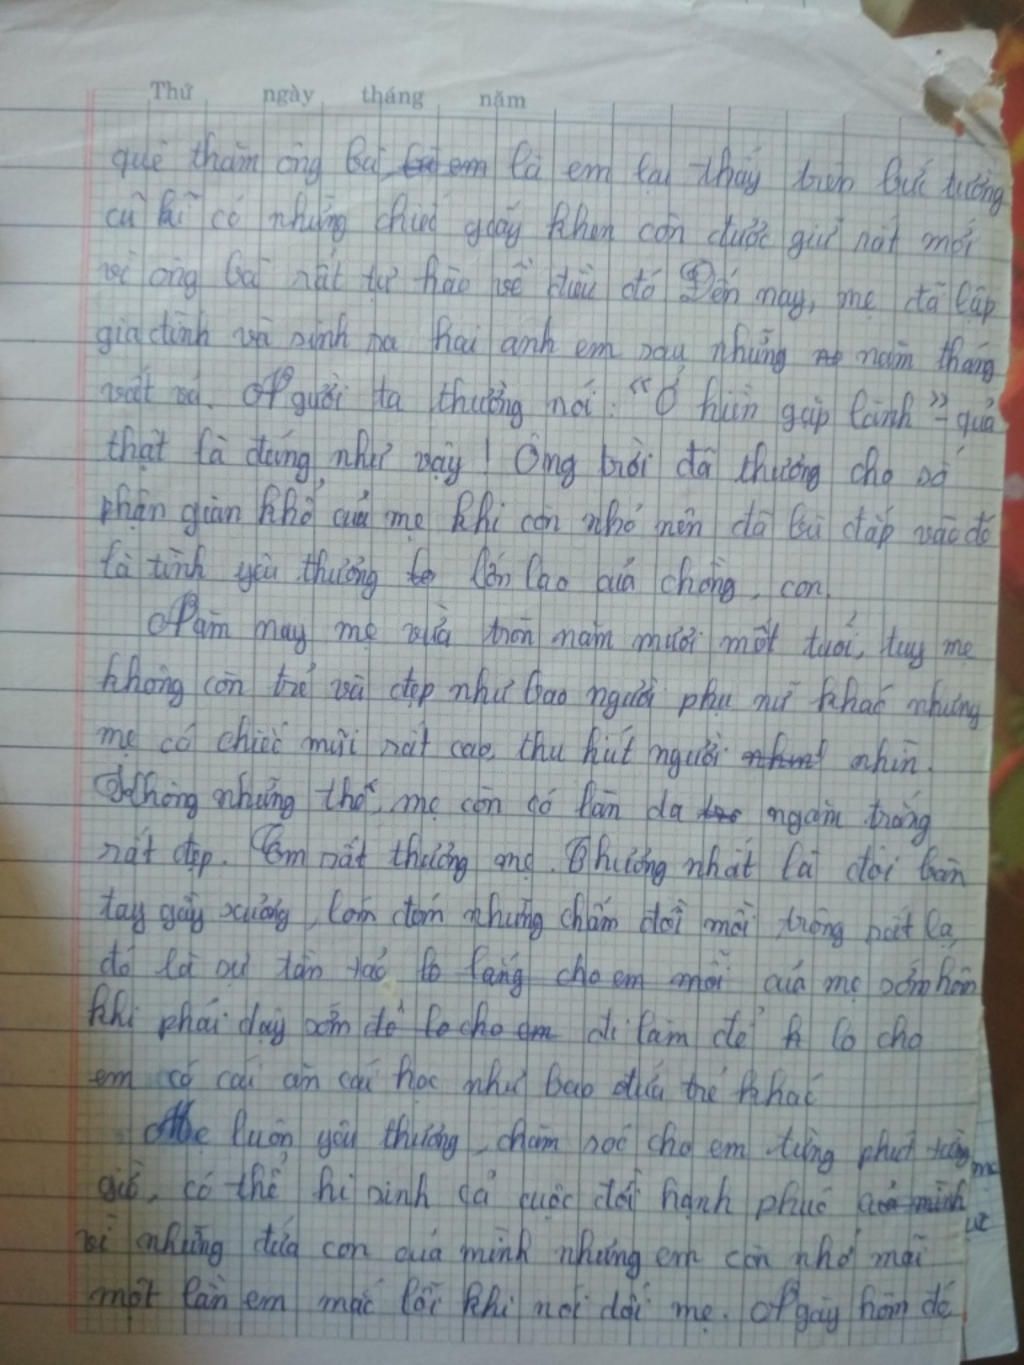 Thứ ngày tháng năm
quê thăm ông bà, là em lại thấy trên bức tường
cũ kĩ có những chiếc giấy khen còn được giữ rất mới
vì ông bà rất tự hào về điều đó Đến nay, mẹ đã lập
gia đình và sinh ra hai anh em sau những năm tháng
vất vả. Người ta thường nói: "Ở hiền gặp lành" - quả
thật là đúng như vậy! Ông trời đã thương cho số
phận gian khổ của mẹ khi còn nhỏ nên đã bù đắp vào đó
là tình yêu thương lớn lao của chồng, con.
Năm nay mẹ vừa tròn năm mươi mốt tuổi, tuy mẹ
không còn trẻ và đẹp như bao người phụ nữ khác nhưng
mẹ có chiếc mũi rất cao, thu hút người nhìn.
Không những thế, mẹ còn có làn da ngăm trắng
rất đẹp. Em rất thương mẹ. Thương nhất là đôi bàn
tay gầy xương, lốm đốm những chấm đồi mồi trông rất lạ,
đó là sự tần tảo lo lắng cho em mỗi của mẹ sớm hôm
khi phải dạy sớm để đi làm để lo cho
em có cái ăn cái học như bao đứa trẻ khác
Mẹ luôn yêu thương, chăm sóc cho em từng phút từng
giờ, có thể hi sinh cả cuộc đời hạnh phúc của mình
vì những đứa con của mình nhưng em còn nhớ mãi
một lần em mắc lỗi khi nói dối mẹ. Ngày hôm đó